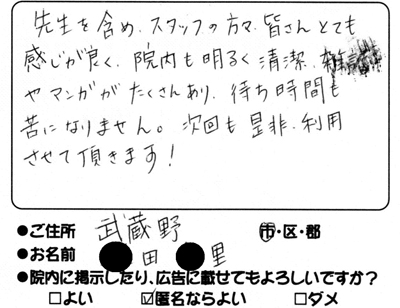 先生を含め、スタッフの方々、皆さんとても
感じが良く、院内も明るく清潔、雑誌
やマンガがたくさんあり、待ち時間も
苦になりません。次回も是非、利用
させて頂きます！
●ご住所 武蔵野 市・区・郡
●お名前 田 里
●院内に掲示したり、広告に載せてもよろしいですか？
□よい ☑匿名ならよい □ダメ